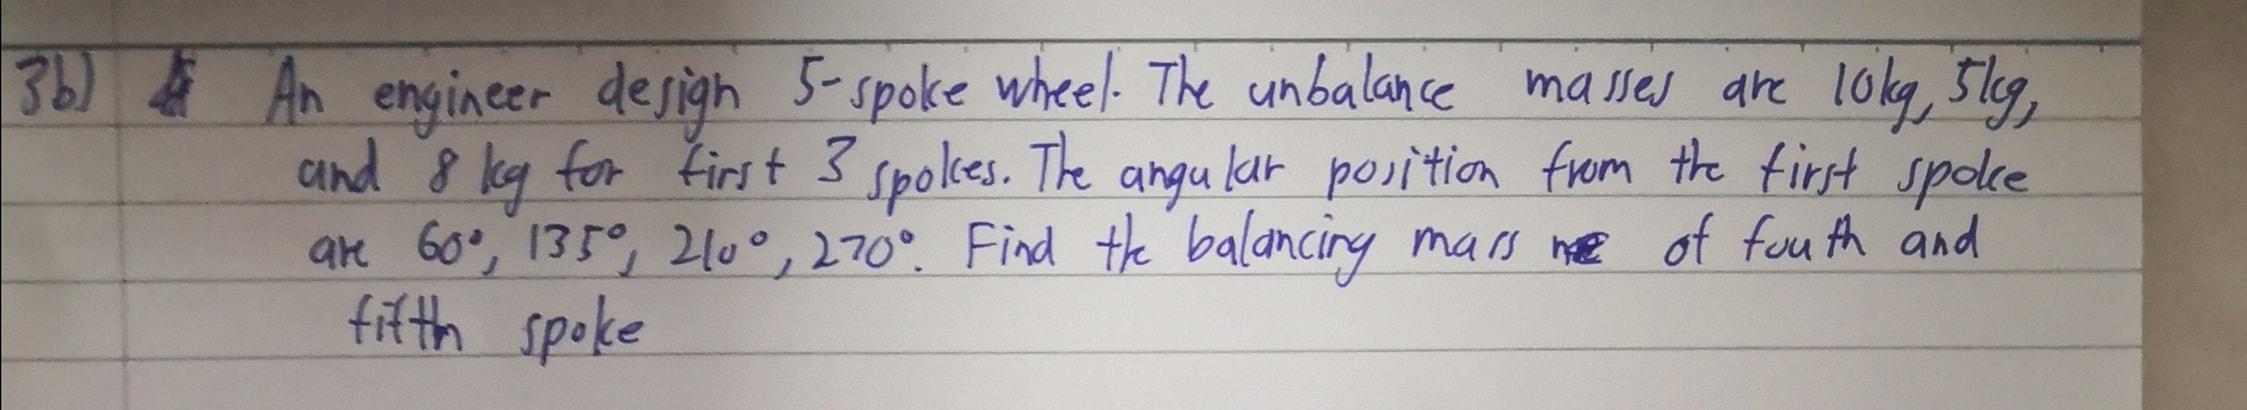 3b) An engineer design 5-spoke wheel. The unbalance masses are 10kg, 5kg,
and 8 kg for first 3 spokes. The angular position from the first spoke
are 60°, 135°, 210°, 270°. Find the balancing mass of fouth and
fifth spoke